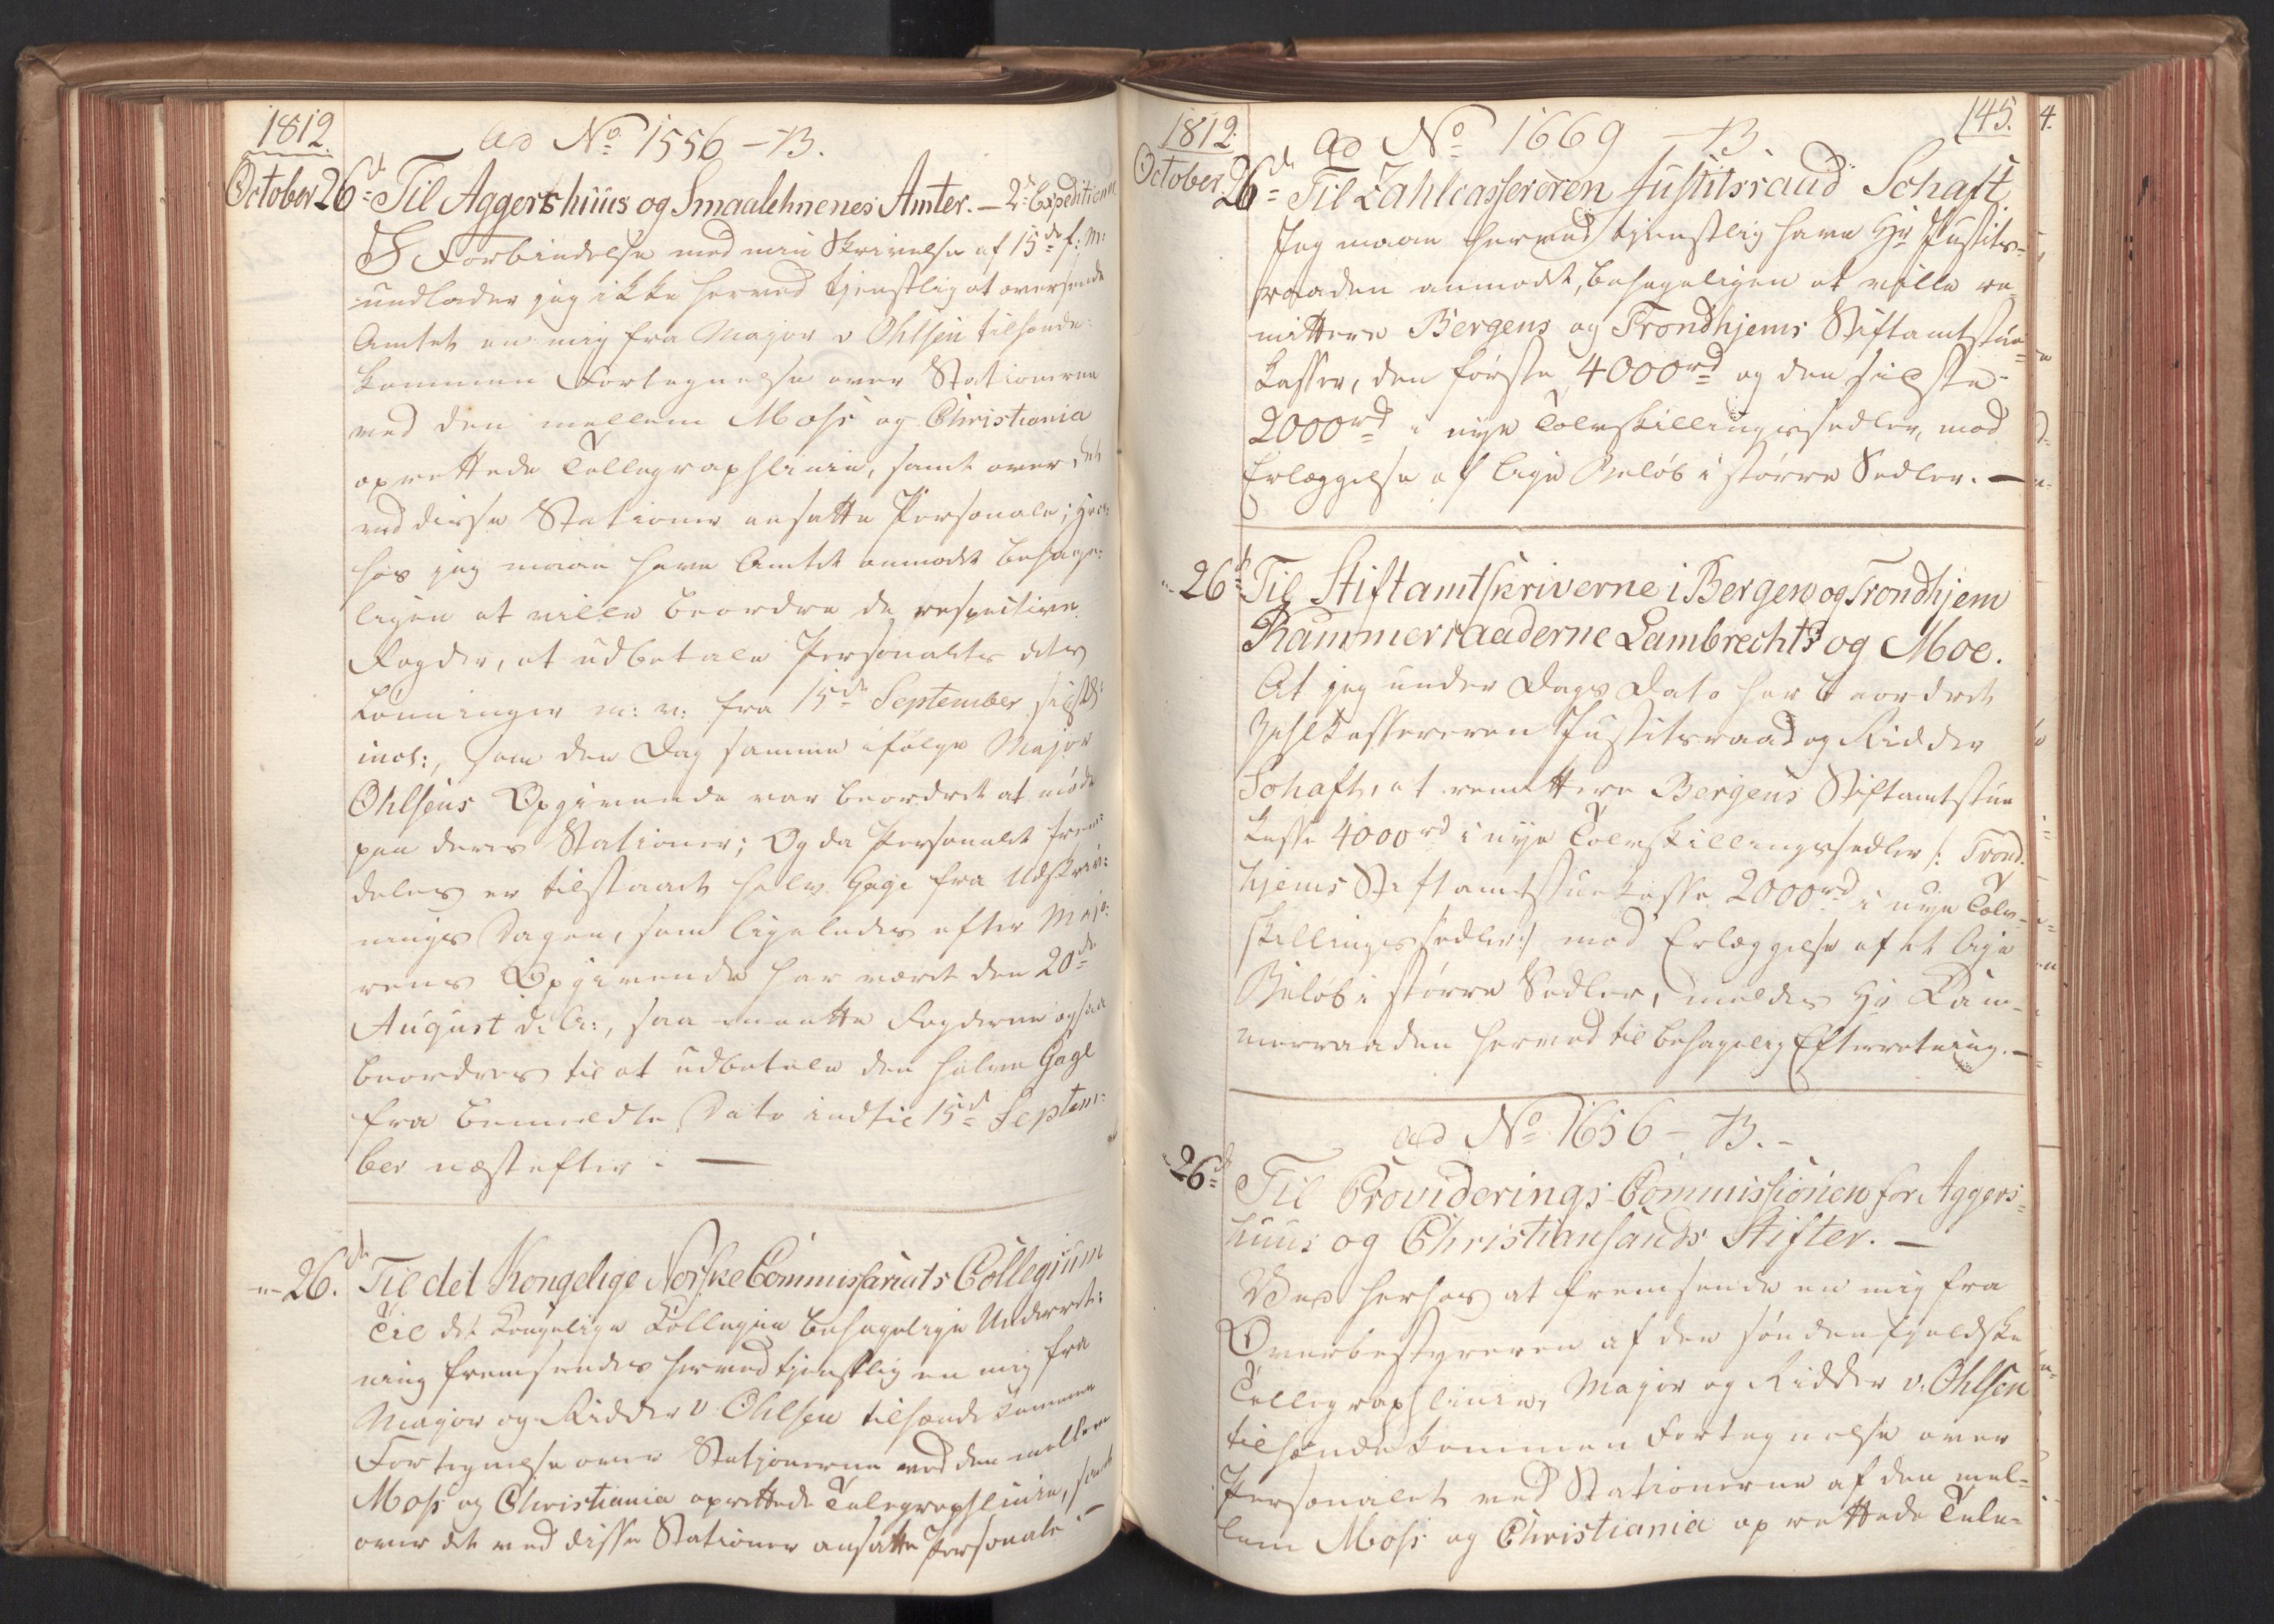 1812.
ad No 1556 - B.
October 26de Til Aggershuus og Smaalehnenes Amter. - 2de Expeditioner
I Forbindelse med min Skrivelse af 15de f: M:
undlader jeg ikke herved tjenstlig at oversende
Amtet en mig fra Major v Ohlsen tilhænde-
kommen Fortegnelse over Stationerne
ved den mellem Moss og Christiania
oprettede Tellegraphlinie, samt over det
ved disse Stationer ansatte Personale; hvor-
hos jeg maae have Amtet anmodet behage-
ligen at ville beordre de respective
Fogder, at udbetale Personalets dets
Lønninger m: v: fra 15de September sidstl:
incl:, som den Dag samme ifølge Major
Ohlsens Opgivende var beordret at møde
paa deres Stationer; Og da Personalet frem-
deles er tilstaaet halv Gage fra Udskriv-
nings Dagen, som ligeledes efter Majo-
rens Opgivende har været den 20de
August d. A:, saa maatte Fogderne ogsaa
beordres til at udbetale den halve Gage
fra bemeldte Dato indtil 15de Septem-
ber næstefter. -
- 26de Til det Kongelige Norske Commissariats Collegium
Til det Kongelige Collegii behagelige Underret-
ning fremsendes herved tjenstlig en mig fra
Major og Ridder v Ohlsen tilhændekommen
Fortegnelse over Stationerne ved den mellem
Moss og Christiania oprettede Telegraphlinie, samt
over det ved disse Stationer ansatte Personale. -
145.
1812.
ad No 1669 - B
October 26de Til Zahlcassereren Justitsraad Schaft.
Jeg maae herved tjenstlig have Hr Justits-
raaden anmodet, behageligen at ville re-
mittere Bergens og Trondhjems Stiftamtstue-
kasser, den første 4000rd og den sidste
2000rd i nye Tolvskillingssedler, mod
Erlæggelse af lige Beløb i større Sedler. -
- 26de Til Stiftamtskriverne i Bergen og Trondhjem
Kammerraaderne Lambrechts og Moe.
At jeg under Dags Dato har beordret
Zahlkassereren Justitsraad og Ridder
Schaft, at remittere Bergens Stiftamtstue
kasse 4000rd i nye Tolvskillingssedler /: Trond-
hjems Stiftamtstuekasse 2000rd i nye Tolv-
skillingssedler :/ mod Erlæggelse af et lige
Beløb i større Sedler, meldes Hr Kam-
merraaden herved til behagelig Efterretning. -
ad No 1656 - B. -
- 26de Til Providerings Commissionen for Aggers-
huus og Christiansands Stifter. -
Ved herhos at fremsende en mig fra
Overbestyreren af den søndenfjeldske
Tellegraphlinie, Major og Ridder v. Ohlsen
tilhændekommen Fortegnelse over
Personalet ved Stationerne af den mel-
lem Moss og Christiania oprettede Tele-
4.